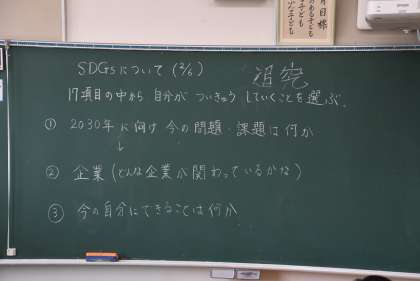 SDGsについて (2/6)
追究
17項目の中から 自分が ついきゅう していくことを選ぶ.
① 2030年に向け 今の問題・課題は何か
↓
② 企業 (どんな企業が関わっているかな)
③ 今の自分にできることは何か
月目標